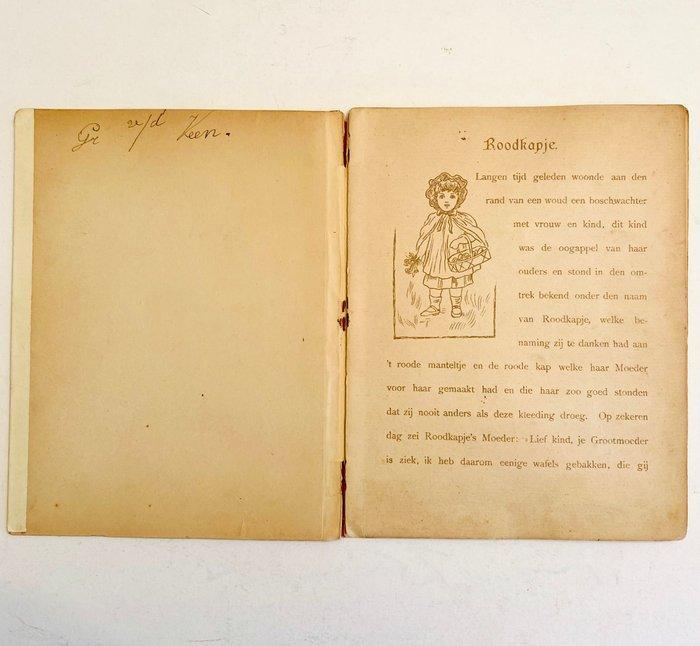 Gr v/d Veen.
Roodkapje.
Langen tijd geleden woonde aan den
rand van een woud een boschwachter
met vrouw en kind, dit kind
was de oogappel van haar
ouders en stond in den om-
trek bekend onder den naam
van Roodkapje, welke be-
naming zij te danken had aan
't roode manteltje en de roode kap welke haar Moeder
voor haar gemaakt had en die haar zoo goed stonden
dat zij nooit anders als deze kleeding droeg. Op zekeren
dag zei Roodkapje's Moeder: »Lief kind, je Grootmoeder
is ziek, ik heb daarom eenige wafels gebakken, die gij